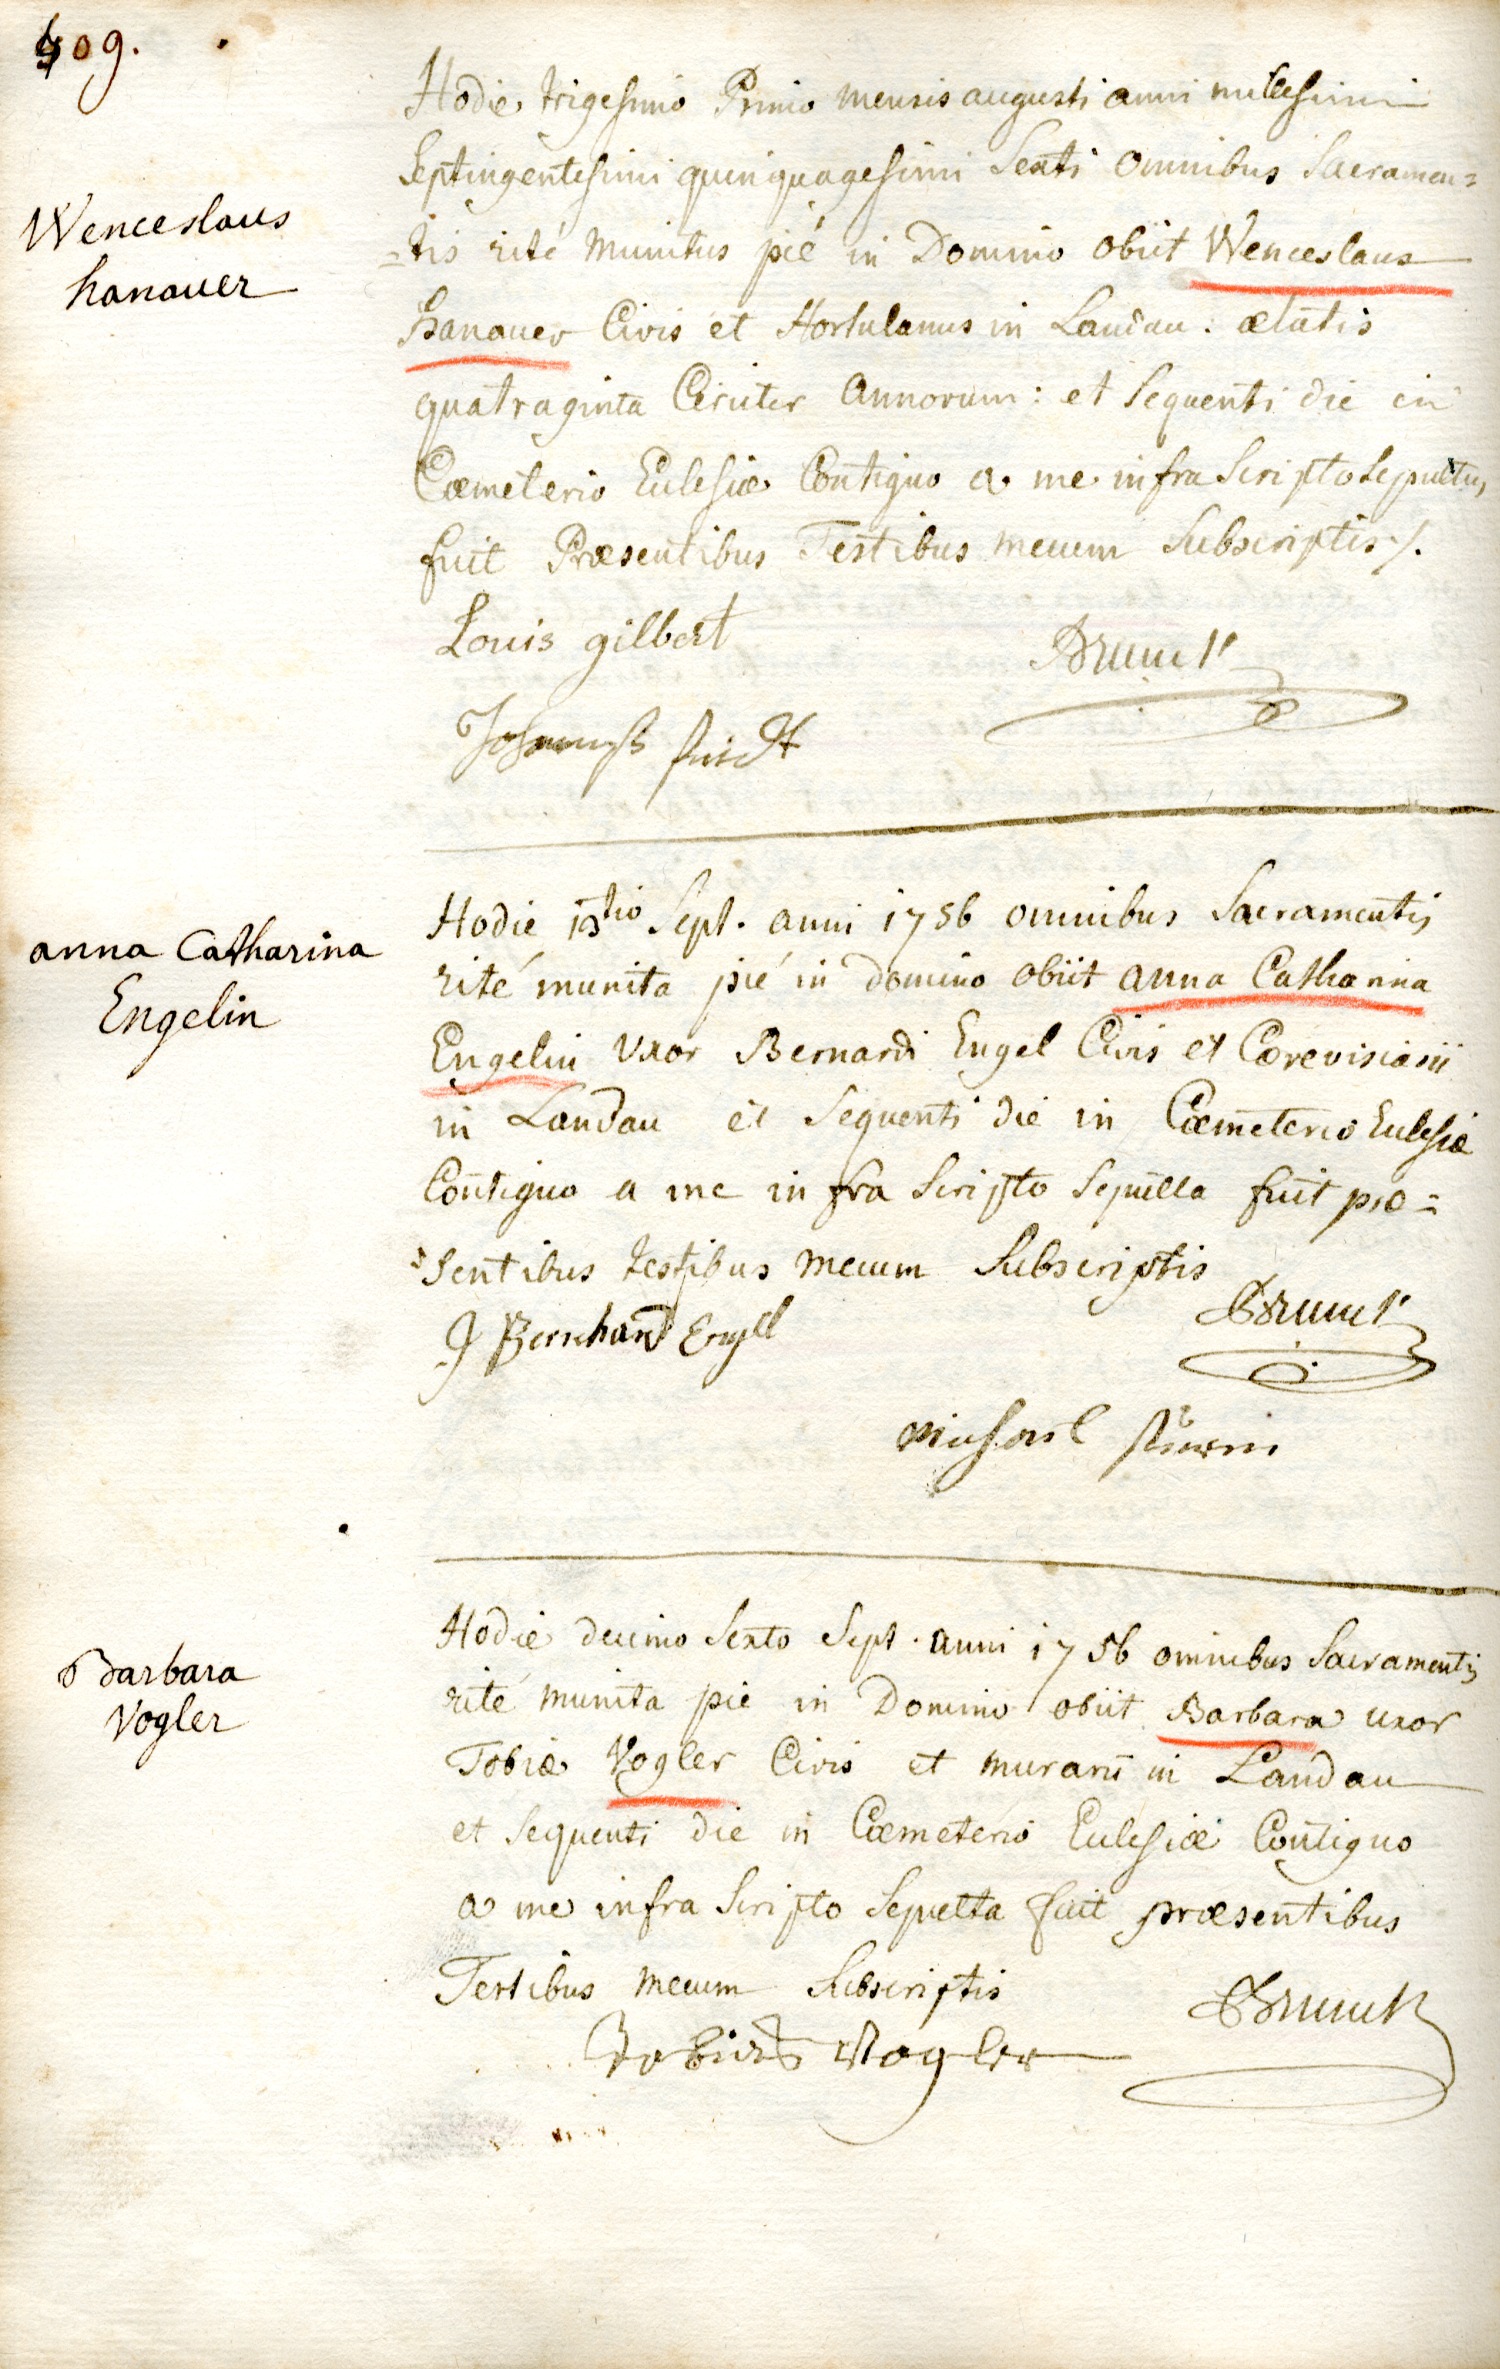 409.
Wenceslaus
hanauer
Hodie trigesimo Primo mensis augusti anni millesimi
Septingentesimi quinquagesimi Sexti omnibus Sacramen=
=tis rité munitus pié in Domino obiit Wenceslaus
Hanauer Civis et Hortulanus in Landau: ætatis
quatraginta Circiter annorum: et sequenti die in
Cœmeterio Eclesiæ Contiguo a me infra Scripto sepultus
fuit Præsentibus Testibus mecum Subscriptis ./.
Louis gilbert
Brunck
Johannes
anna Catharina
Engelin
Hodie 13tio Sept. anni 1756 omnibus Sacramentis
rité munita pié in Domino obiit anna Catharina
Engelin Uxor Bernardi Engel Civis et Cerevisiarii
in Landau et sequenti die in Cœmeterio Eclesiæ
Contiguo a me infra Scripto sepulta fuit præ=
=sentibus testibus mecum Subscriptis
J Bernhard Engel
Brunck
Barbara
Vogler
Hodie decimo Sexto Sept. anni 1756 omnibus Sacramentis
rité munita pié in Domino obiit Barbara uxor
Tobiæ Vogler Civis et murarii in Landau
et sequenti die in Cœmeterio Eclesiæ Contiguo
a me infra Scripto Sepulta fuit præsentibus
Testibus mecum Subscriptis
Brunck
Tobias Vogler